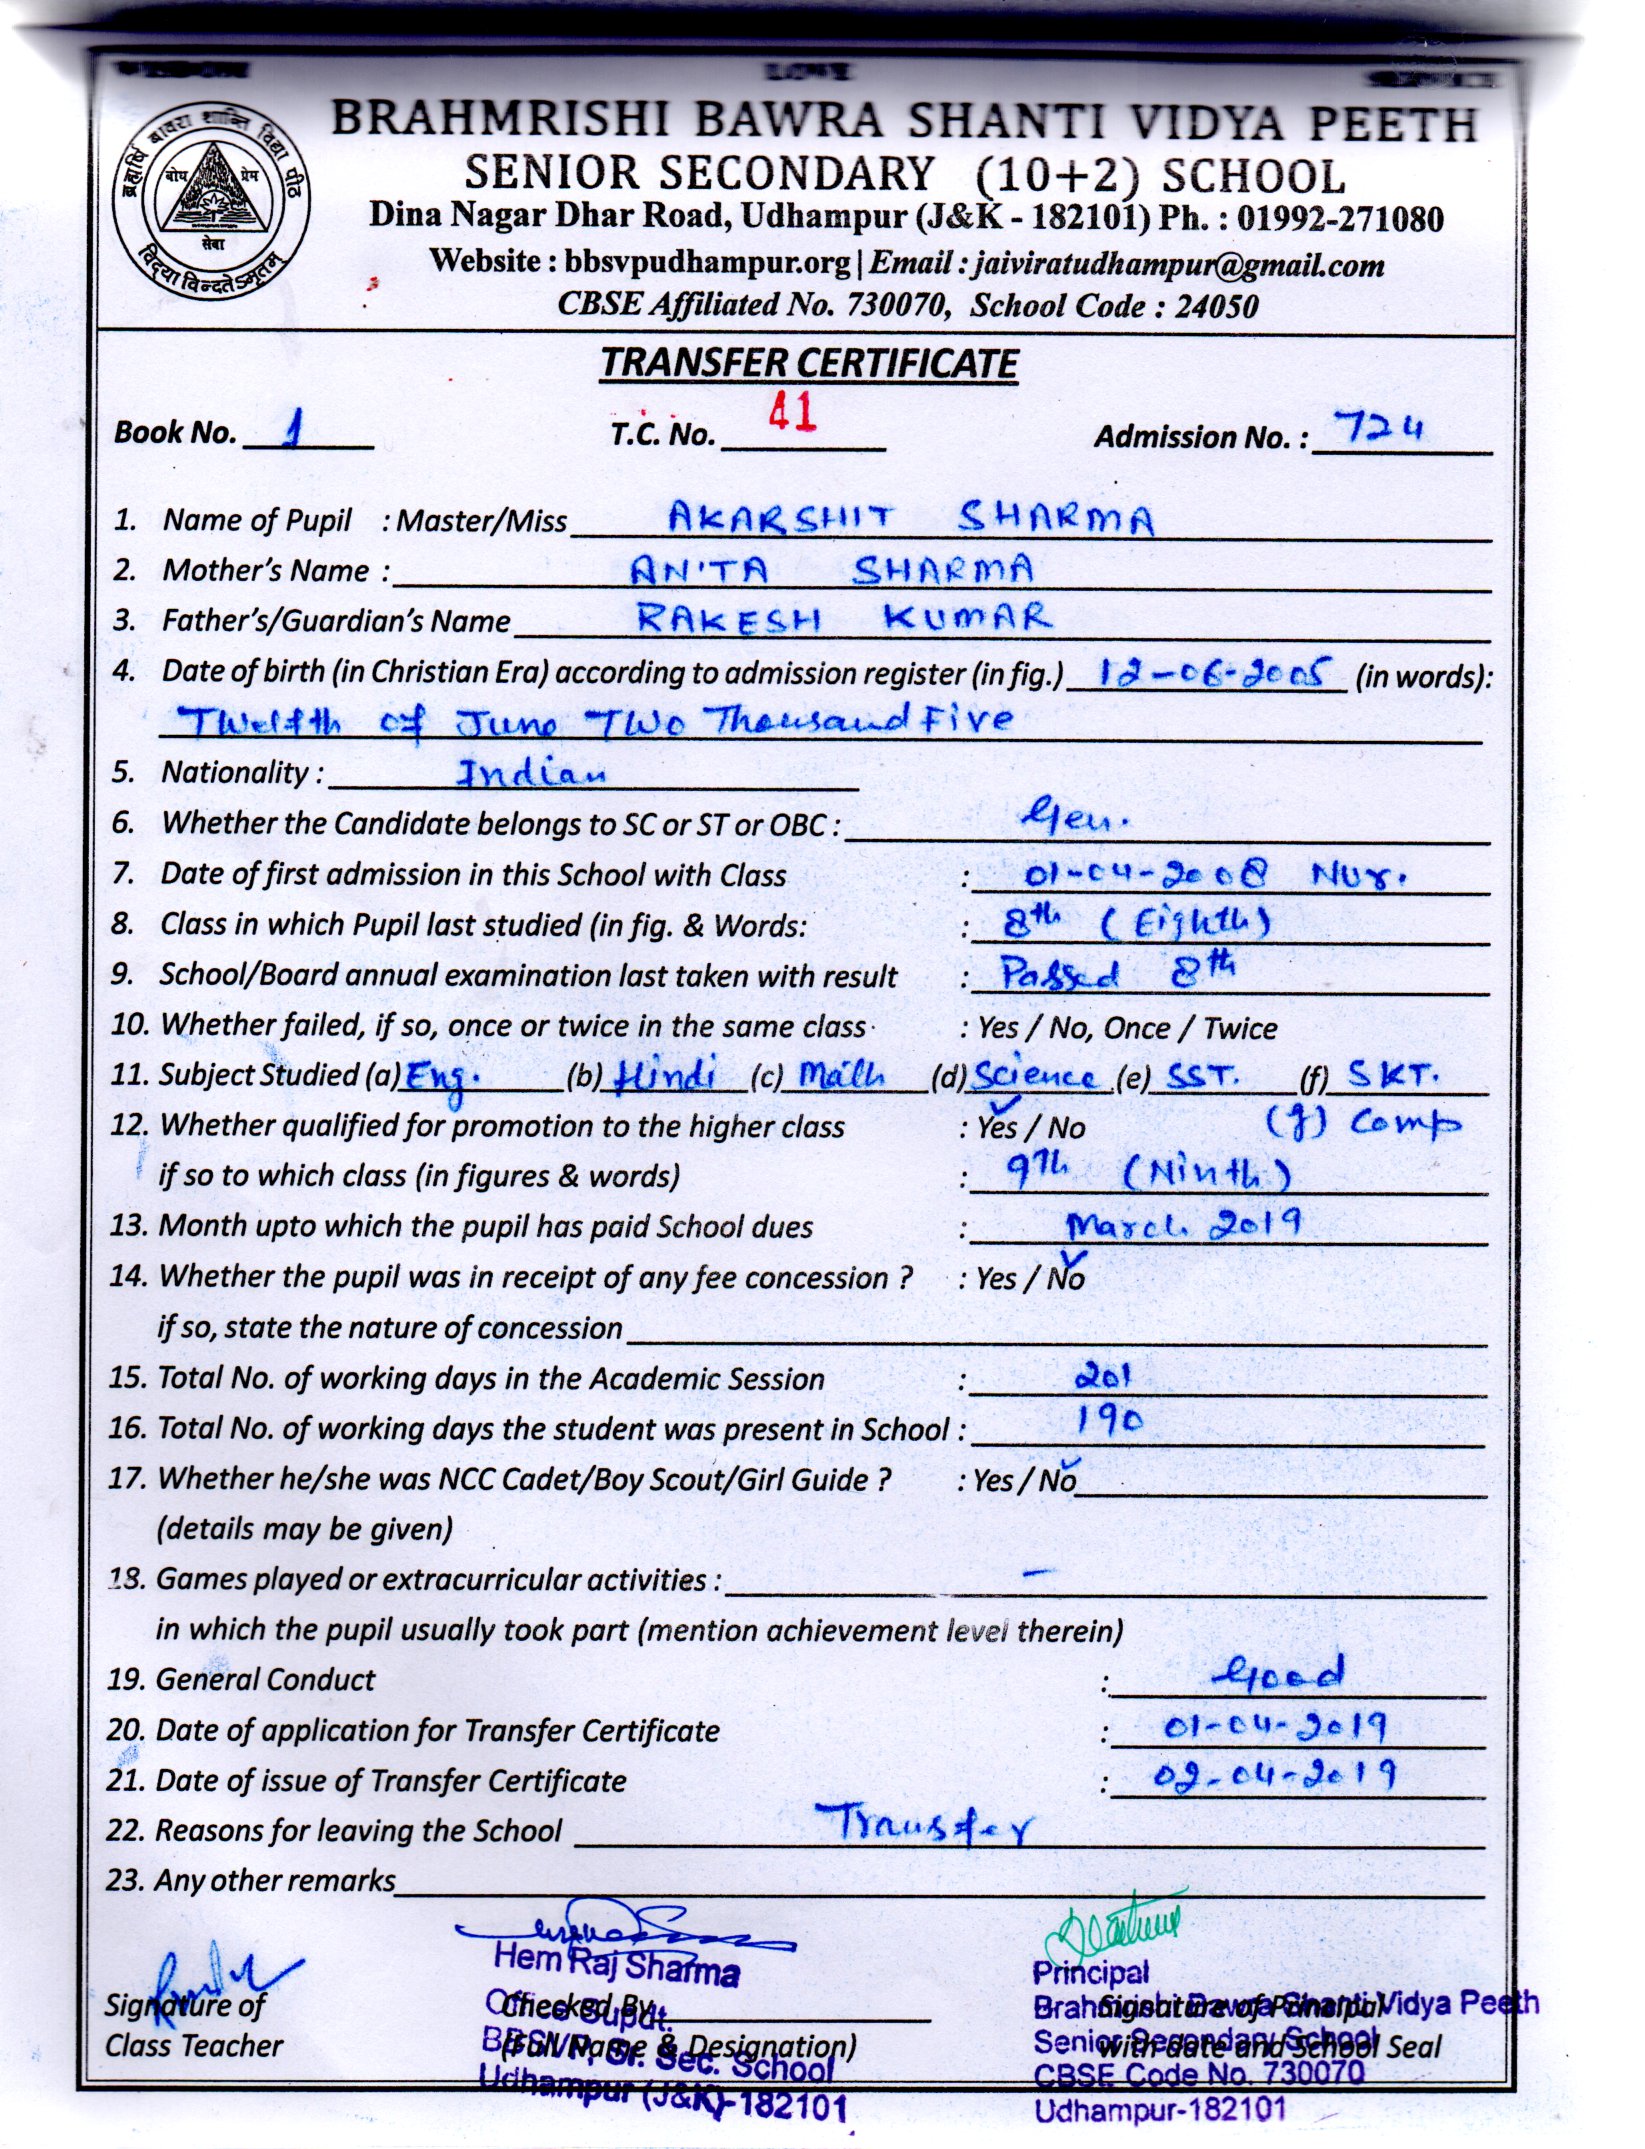 WISDOM LOVE SERVICE
ब्रह्मर्षि बावरा शान्ति विद्या पीठ
बोध प्रेम
सेवा
विद्यया विन्दतेऽमृतम्
BRAHMRISHI BAWRA SHANTI VIDYA PEETH
SENIOR SECONDARY (10+2) SCHOOL
Dina Nagar Dhar Road, Udhampur (J&K - 182101) Ph. : 01992-271080
Website : bbsvpudhampur.org | Email : jaiviratudhampur@gmail.com
CBSE Affiliated No. 730070, School Code : 24050
TRANSFER CERTIFICATE
Book No. 1 T.C. No. 41 Admission No. : 724
1. Name of Pupil : Master/Miss AKARSHIT SHARMA
2. Mother's Name : ANITA SHARMA
3. Father's/Guardian's Name RAKESH KUMAR
4. Date of birth (in Christian Era) according to admission register (in fig.) 12-06-2005 (in words):
Twelfth of June Two Thousand Five
5. Nationality : Indian
6. Whether the Candidate belongs to SC or ST or OBC : Gen.
7. Date of first admission in this School with Class : 01-04-2008 Nur.
8. Class in which Pupil last studied (in fig. & Words: : 8th (Eighth)
9. School/Board annual examination last taken with result : Passed 8th
10. Whether failed, if so, once or twice in the same class : Yes / No, Once / Twice
11. Subject Studied (a) Eng. (b) Hindi (c) Math (d) Science (e) SST. (f) SKT.
12. Whether qualified for promotion to the higher class : Yes / No (g) Comp
if so to which class (in figures & words) : 9th (Ninth)
13. Month upto which the pupil has paid School dues : March 2019
14. Whether the pupil was in receipt of any fee concession ? : Yes / No
if so, state the nature of concession
15. Total No. of working days in the Academic Session : 201
16. Total No. of working days the student was present in School : 190
17. Whether he/she was NCC Cadet/Boy Scout/Girl Guide ? : Yes / No
(details may be given)
18. Games played or extracurricular activities : -
in which the pupil usually took part (mention achievement level therein)
19. General Conduct : Good
20. Date of application for Transfer Certificate : 01-04-2019
21. Date of issue of Transfer Certificate : 02-04-2019
22. Reasons for leaving the School Transfer
23. Any other remarks
Hem Raj Sharma Principal
Signature of Checked By Signature of Principal
Office Supdt. Brahmrishi Bawra Shanti Vidya Peeth
Class Teacher (Full Name & Designation) with date and School Seal
BBSVP, Sr. Sec. School Senior Secondary School
Udhampur (J&K)-182101 CBSE Code No. 730070
Udhampur-182101